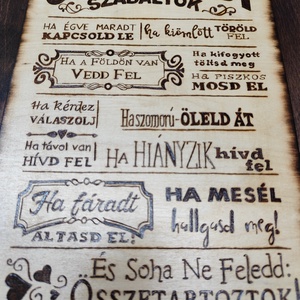 SZABÁLYOK
HA ÉGVE MARADT
KAPCSOLD LE
ha kiömlött
TÖRÖLD
FEL
HA A FÖLDÖN VAN
VEDD FEL
Ha kifogyott
töltsd meg
HA PISZKOS
MOSD EL
Ha kérdez
VÁLASZOLJ
Ha szomorú - ÖLELD ÁT
Ha távol van
HÍVD FEL
HA HIÁNYZIK hívd
fel
Ha fáradt
ALTASD EL!
HA MESÉL
hallgasd meg!
...És Soha Ne Feledd:
ÖSSZETARTOZTOK